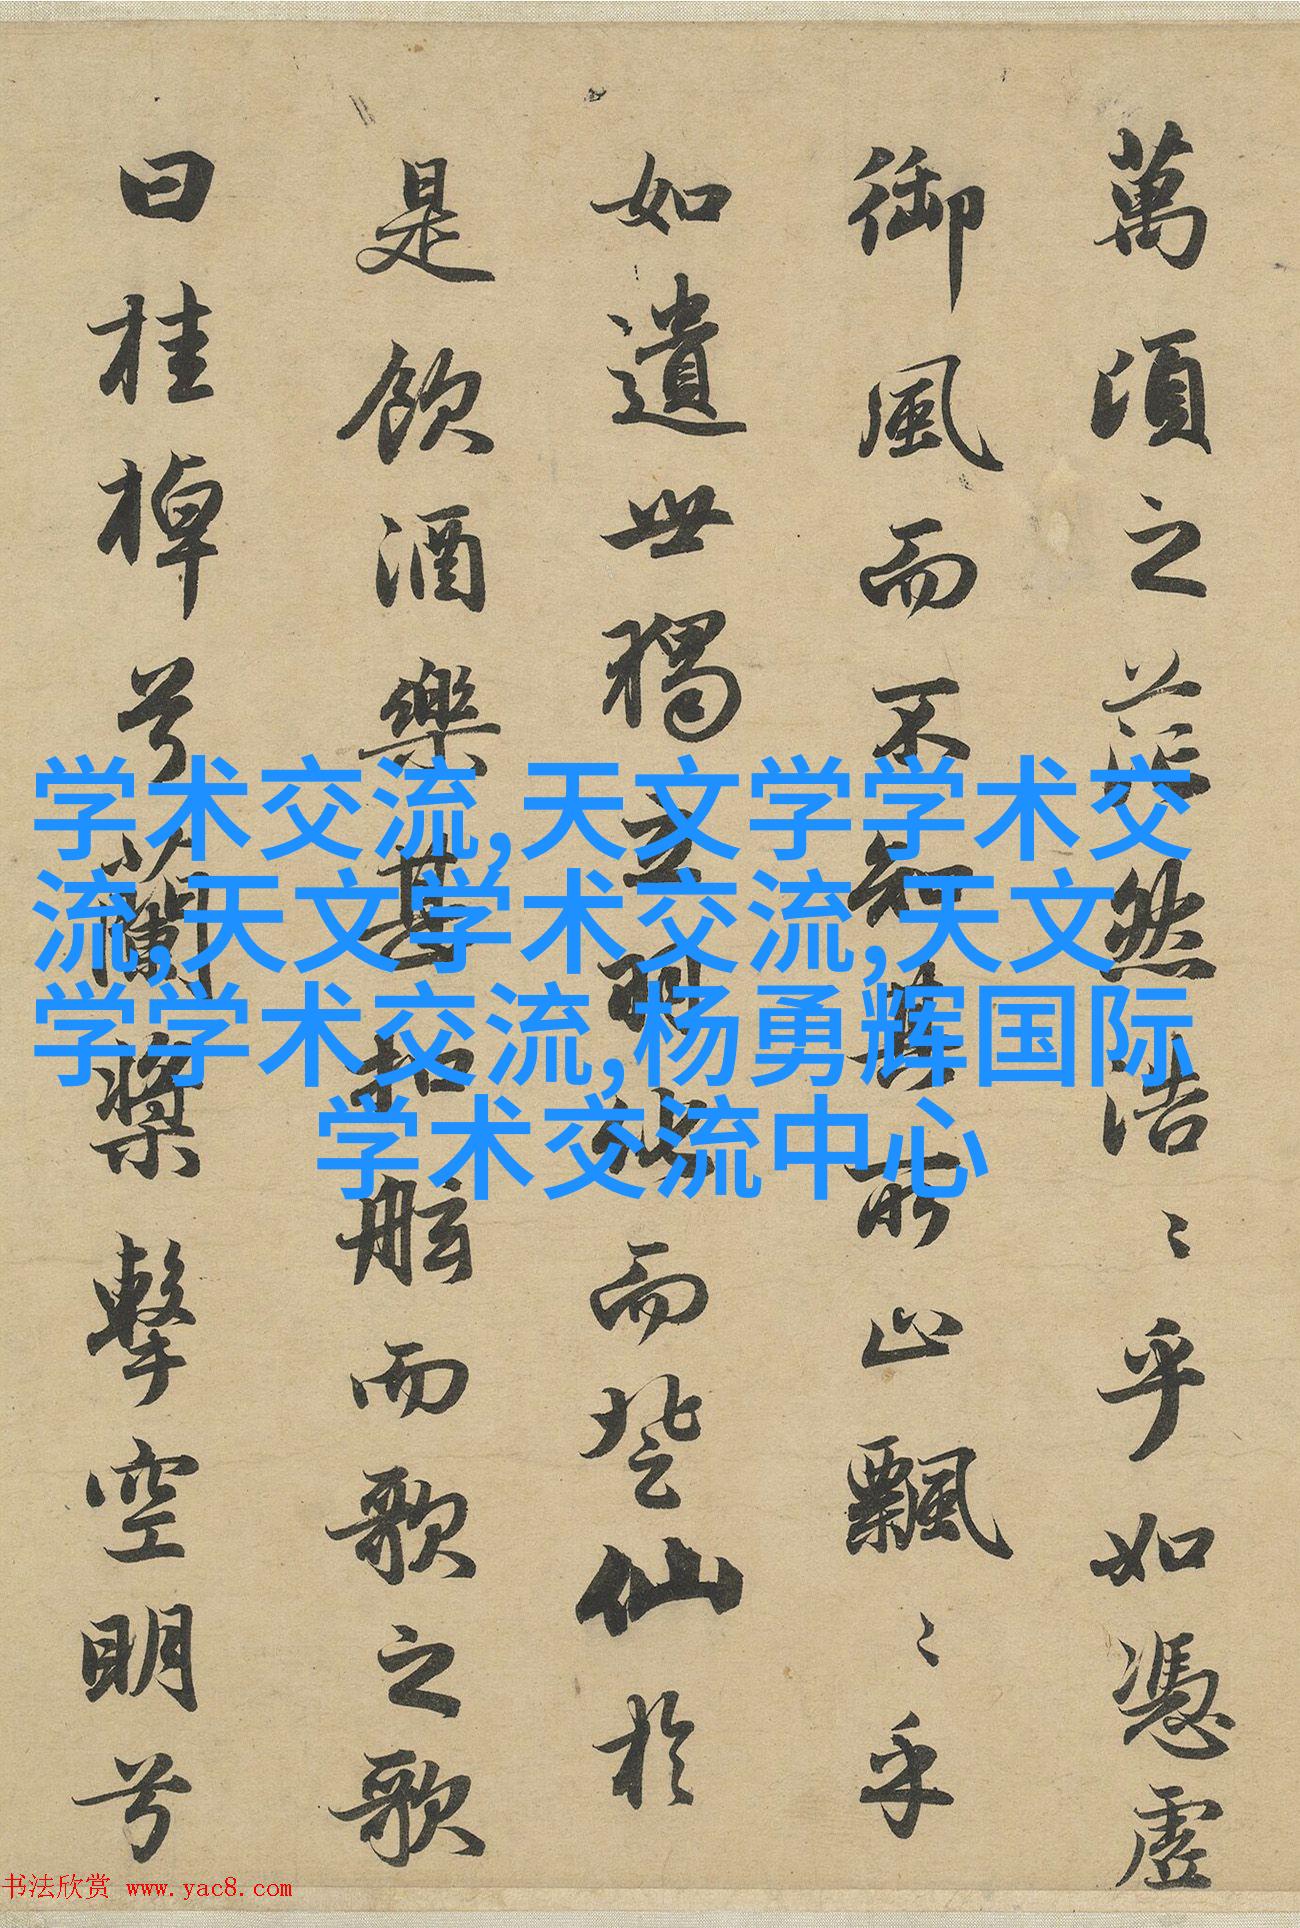 萬頃之茫然浩〻乎如憑虛
御風而不知其所止飄〻乎
如遺世獨立羽化而登仙於
是飲酒樂甚扣舷而歌之歌
曰桂棹兮蘭槳擊空明兮
学术交流,天文学学术交
流,天文学术交流,天文
学学术交流,杨勇辉国际
学术交流中心
书法欣赏 www.yac8.com